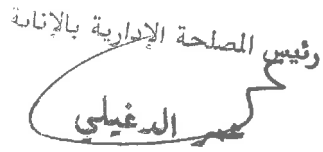 رئيس المصلحة الإدارية بالإنابة
عمر الدغيلي